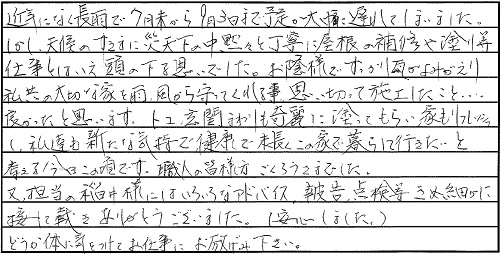 近年になく長雨で7月末から9月3日まで予定が大幅に遅れてしまいました。
しかし天候のすきに炎天下の中黙々と丁寧に屋根の補修や塗り等
仕事とはいえ頭の下る思いでした。お陰様ですっかり家がよみがえり
私共の大切な家を雨、風から守ってくれる事思い切って施工したこと…
良かったと思います。トユ、玄関まわりも綺麗に塗ってもらい家も
し、私達も新たな気持で健康で末長くこの家で暮らして行きたいと
考える今日この頃です。職人の皆様方ごくろうさまでした。
又、担当の稲井様にはいろいろなアドバイス、報告、点検等きめ細かに
接して戴きありがとうございました。(安心しました。)
どうか体に気をつけてお仕事にお励み下さい。